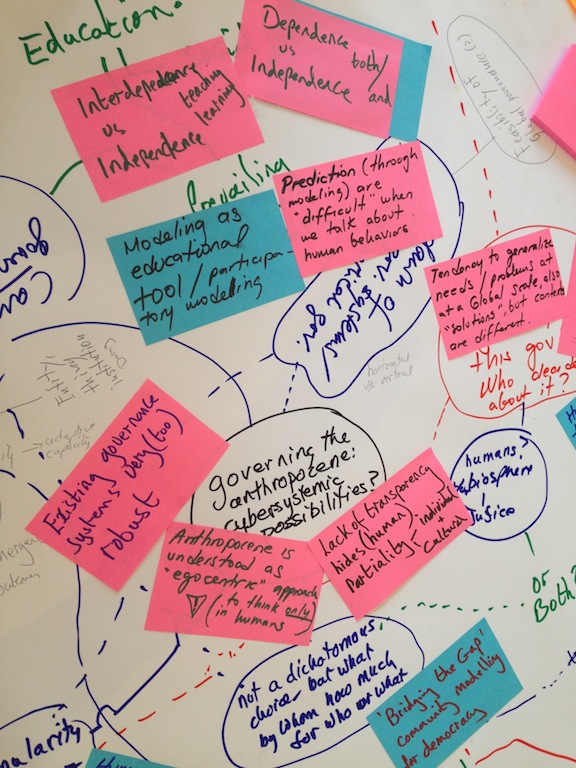 Education
Interdependency
us teaching
Independence learning
Dependence
us both/
Independence and
Feasibility of
Global governance(s)
Prevailing
Prediction (through
modeling) are
"difficult" when
we talk about
human behaviors
Modeling as
educational
tool / participa-
tory modelling
Tendency to generalize
needs / problems at
at a Global scale, also
"solutions", but contexts
are different.
this gov
Who decides
about it?
of systems
horizontal
v/s vertical
Doing
things
institution
adaptive
capacity
Existing governance
systems very (too)
robust
governing the
anthropocene:
cybersystemic
possibilities?
Lack of transparency
hides (human)
Partiality - individual
+
Cultural
humans?
biosphere
Anthropocene is
understood as
"egocentric" approach
(to think only
in humans)
or
Both?
not a dichotomous
choice but what
by whom how much
for who or what
'Bridging the Gap'
community modelling
for democracy